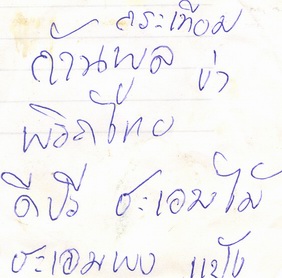 กระเทียม
ก้านพลู ข่า
พริกไทย
ดีปลี ชะเอมไม้
ชะเอม